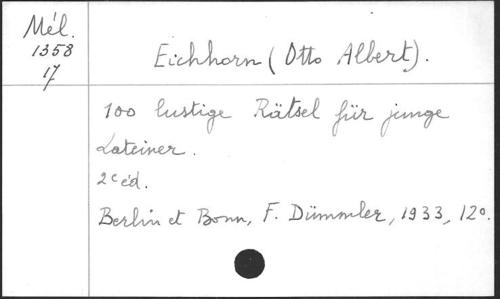 Mél.
1358
17
Eichhorn (Otto Albert).
100 lustige Rätsel für junge
Lateiner.
2e éd.
Berlin et Bonn, F. Dümmler, 1933, 12º.